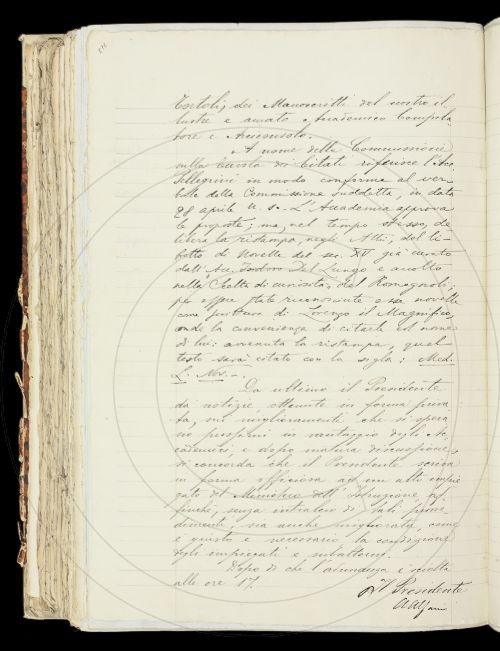 Tortoli, dei Manoscritti del nostro il-
lustre e amato Accademico Compila-
tore e Arciconsolo.
A nome della Commissione
sulla Tavola dei Citati riferisce l'Acc.
Pellegrini in modo conforme al ver-
bale della Commissione suddetta, in data
28 aprile u. s. L'Accademia approva
le proposte; ma, nel tempo stesso, de-
libera la ristampa, negli Atti, del li-
bretto di Novelle del sec. XV già curato
dall'Acc. Isidoro Del Lungo e accolto
nella Scelta di curiosità, del Romagnoli;
per essere state riconosciute esse novelle
come fattura di Lorenzo il Magnifico,
onde la convenienza di citarle al nome
di lui: avvenuta la ristampa, quel
testo sarà citato con la sigla: Med.
L. Nov. -
Da ultimo il Presidente
dà notizie, ottenute in forma priva-
ta, sui miglioramenti che si spera-
no prossimi in vantaggio degli Ac-
cademici, e dopo matura discussione
si concorda che il Presidente scriva
in forma officiosa ad un alto impie-
gato del Ministero dell'Istruzione, af-
finchè, senza intralcio di tali prove-
dimenti, sia anche migliorata, come
è giusto e necessario la condizione
degli impiegati e subalterni.
Dopo di che l'adunanza è sciolta
alle ore 17.
Il Presidente